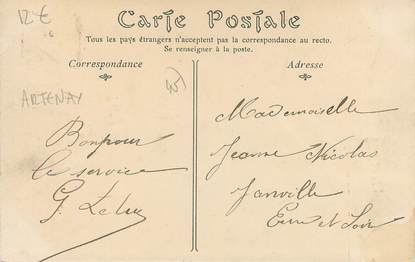 12 €
Carte Postale
Tous les pays étrangers n'acceptent pas la correspondance au recto.
Se renseigner à la poste.
Correspondance
Adresse
ARTENAY
Bonjour
le service
G.
Mademoiselle
Jeanne Nicolas
Janville
Eure et Loir